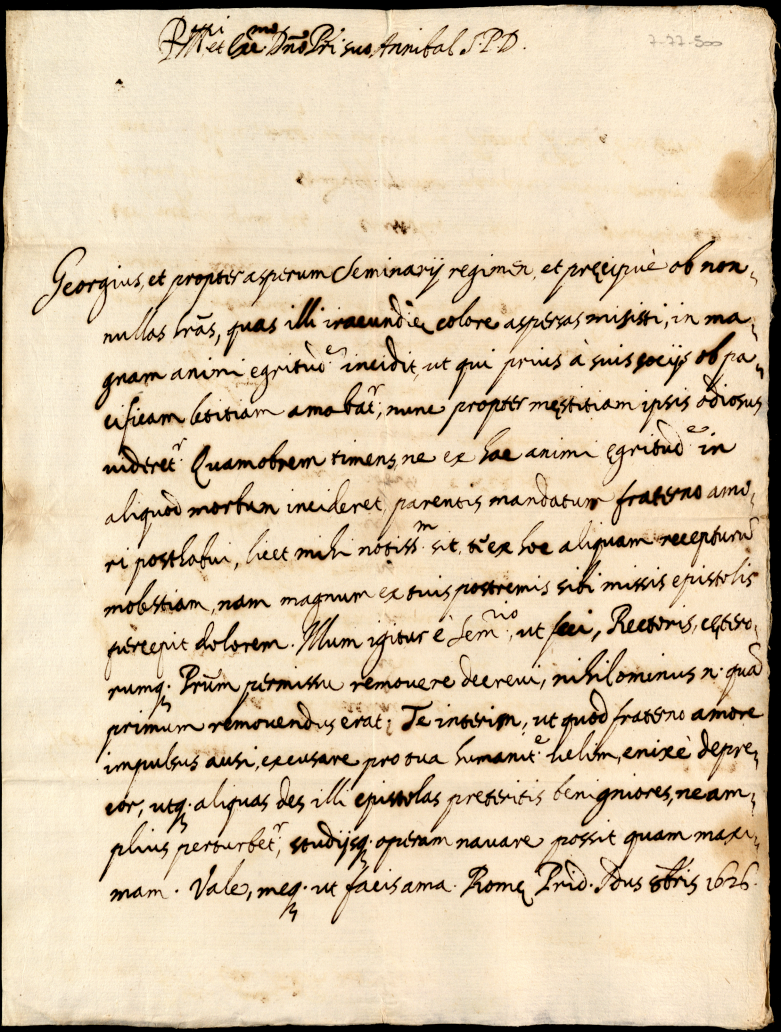 Dno Pri suo Annibal S.P.D.
7-77-500
Georgius, et propter asperum Seminarij regimen, et pręcipuè ob non-
nullas lrãs, quas illi iracundię colore aspersas misisti, in ma-
gnam animi egritùd.e incidit, ut qui prius à suis socijs ob pa-
cificam letitiam amabatr, nunc propter męstitiam ipsis odiosus
uideretr. Quamobrem timens, ne ex hac animi ęgritùd.e in
aliquod morbum incideret, parentis mandatum fraterno amo-
ri posthabui, licet mihi notissm sit, te ex hoc aliquam recepturũ
molestiam, nam magnum ex tuis postremis sibi missis epistolis
percepit dolorem. Illum igitur è Semrio, ut scis, Rectoris, cętero-
rumq. Prũm permissu remouere decreui, nihilominus n. quã
primum remouendus erat; Te interim, ut quod fraterno amore
impulsus ausi, excusare pro tua humanit.e uelim, enixè depre-
cor, utq. aliquas des illi epistolas preteritis benigniores, ne am-
plius perturbetr, studijsq. operam nauare possit quam maxi-
mam. Vale, meq. ut facis ama. Romę Prid. Idus 8bris 1626.